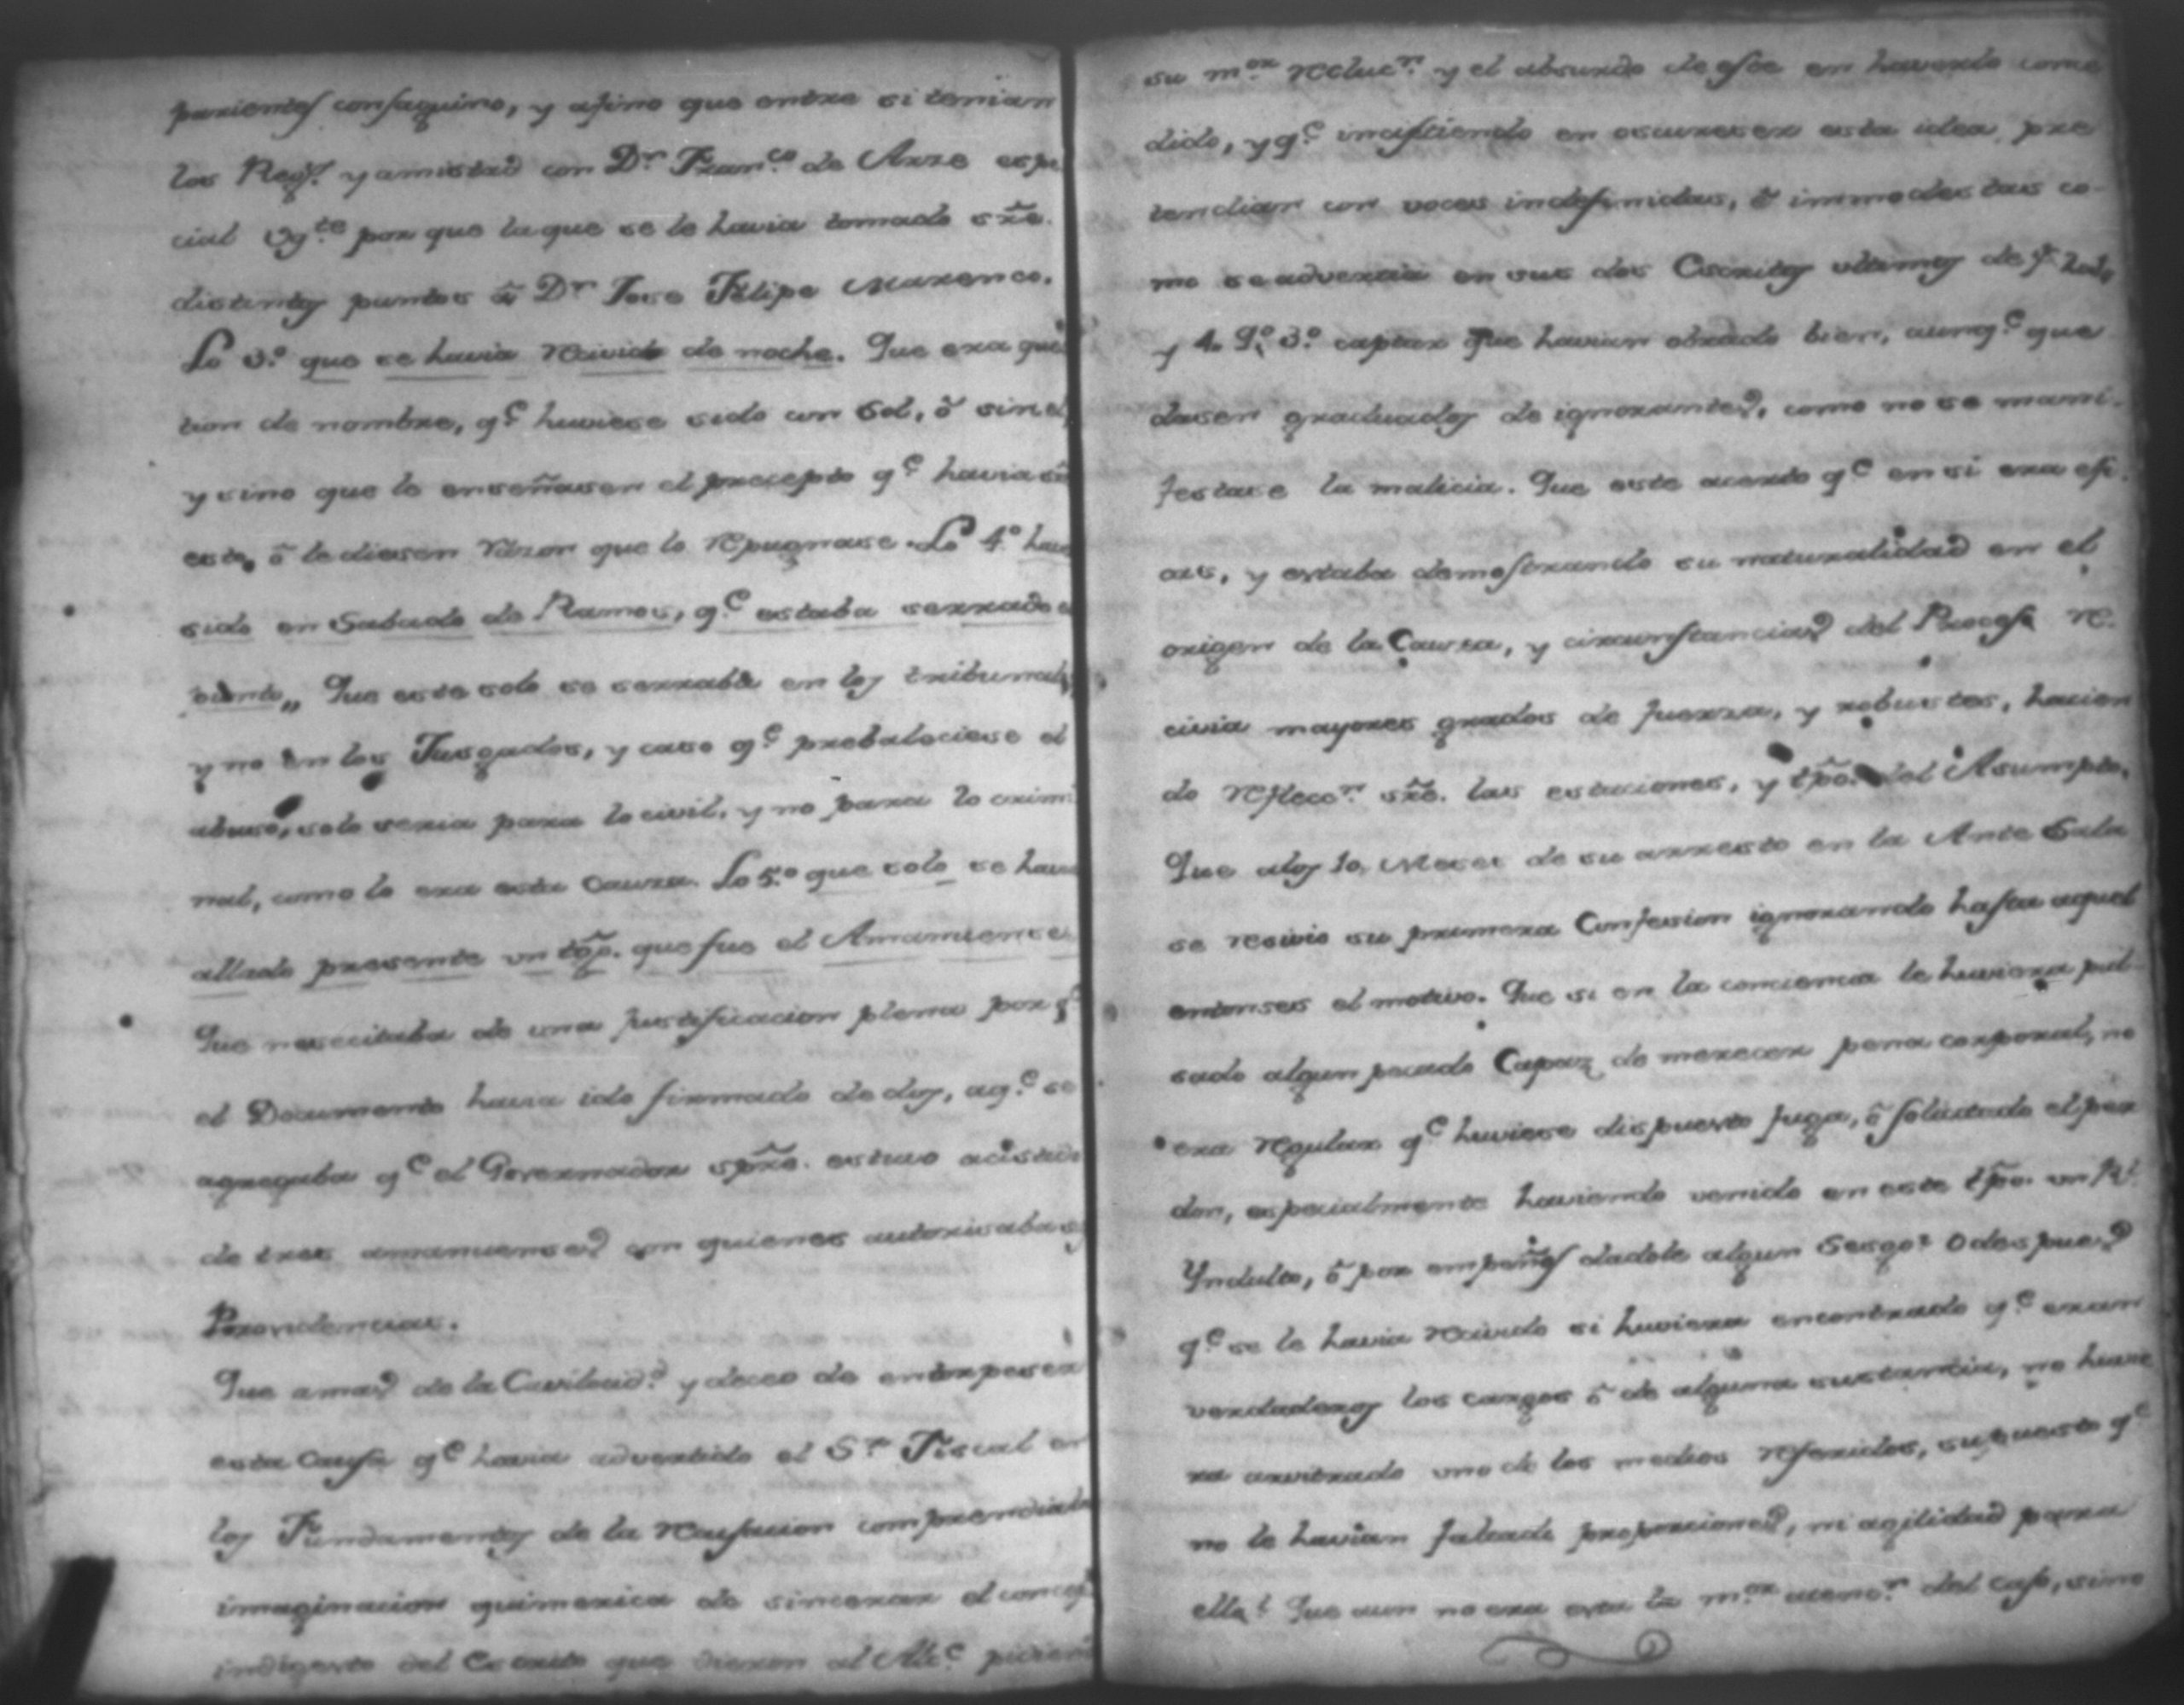 parientes consaguino, y afino que entre si tenian
los Reg.s y amistad con D.n Fran.co de Arze espe
cial por que la que se le havia tomado sre.
distintos puntos á D.n Jose Felipe Marenco.
Lo 3.º que se havia recivido de noche. Que era ques
tion de nombre, q.e huviese sido con Sol, ó sin el,
y sino que le enseñasen el precepto q.e havia en
esto, ó le diesen razon que lo repugnase. Lo 4.º haver
sido en Sabado de Ramos, q.e estaba serrado el
punto,, Que este solo se serraba en los tribunales
y no en los Jusgados, y caso q.e prebaleciese el
abuso, solo seria para lo civil, y no para lo crimi
nal, como lo era esta causa. Lo 5.º que solo se havia
allado presente un tgo. que fue el Amanuense
Que nesecitaba de una justificacion plena por q.e
el Documento havia ido firmado de dos, aq.e se
agregaba q.e el Governador spre. estuvo acistido
de tres amanuenses con quienes autorisaba sus
Providencias.
Que amas de la Cavilocid.d y deceo de entorpeser
esta causa q.e havia advertido el S.r Fiscal en
los Fundamentos de la recusacion comprendida
imaginacion quimerica de sincerar el concep
indigesto del Escrito que dieron al Alc.e pidien
su m.or recluc.n y el absurdo de este en haverlo conce
dido, y q.e incistiendo en oscureser esta idea, pre
tendian con voces indefinidas, é immodestas co-
mo se advertia en sus dos Escritos ultimos de
y 4. q.º 3.º captar que havian obrado bien, aunq.e que
dasen graduados de ignorantes, como no se mani-
festase la malicia. Que este acerto q.e en si era efi-
cas, y estaba demostrando su naturalidad en el
origen de la Causa, y circunstancias del Proceso re-
civia mayores grados de fuerza, y robustes, hacien
do reflecc.n sre. las estaciones, y tpo. del Asumpto.
Que alos 10. Meses de su arresto en la Ante Sala
se resivio su primera Confesion ignorando hasta aquel
entonses el motivo. Que si en la conciencia le huviera pul-
sado algun pecado Capaz de merecer pena corporal, no
era regular q.e huviese dispuesto fuga, ó solicitado el per
don, especialmente haviendo venido en este tpo. un R.l
Yndulto, ó por empeños dadole algun Sesgo? O despues
q.e se le havia recivido si huviera encontrado q.e eran
verdaderos los cargos ó de alguna sustancia, no huvie
ra arvitrado uno de los medios referidos, supuesto q.e
no le havian faltado proporciones, ni agilidad para
ello? Que aun no era esta la m.or atenc.n del caso, sino